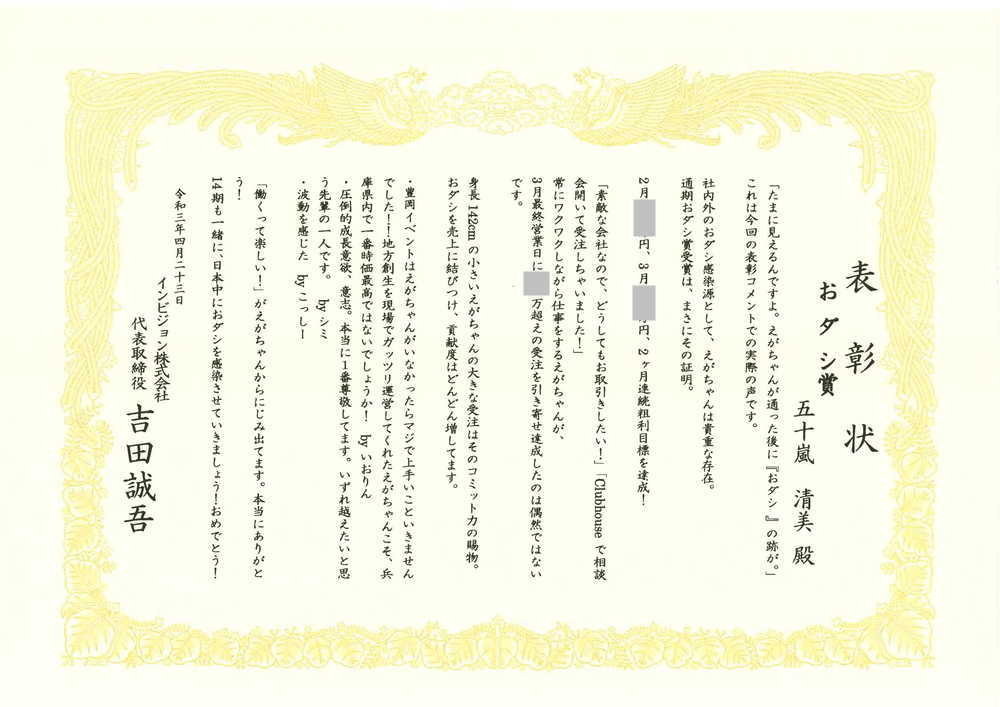 表彰状
おダシ賞
五十嵐 清美 殿
「たまに見えるんですよ。えがちゃんが通った後に『おダシ』の跡が。」
これは今回の表彰コメントでの実際の声です。
社内外のおダシ感染源として、えがちゃんは貴重な存在。
通期おダシ賞受賞は、まさにその証明。
2月 円、3月 円、2ヶ月連続粗利目標を達成！
「素敵な会社なので、どうしてもお取引きしたい！」「Clubhouseで相談
会開いて受注しちゃいました！」
常にワクワクしながら仕事をするえがちゃんが、
3月最終営業日に 万超えの受注を引き寄せ達成したのは偶然ではない
です。
身長142cmの小さいえがちゃんの大きな受注はそのコミット力の賜物。
おダシを売上に結びつけ、貢献度はどんどん増してます。
・豊岡イベントはえがちゃんがいなかったらマジで上手いこといきません
でした！！地方創生を現場でガッツリ運営してくれたえがちゃんこそ、兵
庫県内で一番時価最高ではないでしょうか！ byいおりん
・圧倒的成長意欲、意志。本当に1番尊敬してます。いずれ越えたいと思
う先輩の一人です。 byシミ
・波動を感じた byこっしー
「働くって楽しい！」がえがちゃんからにじみ出てます。本当にありがと
う！
14期も一緒に、日本中におダシを感染させていきましょう！おめでとう！
令和三年四月二十三日
インビジョン株式会社
代表取締役 吉田誠吾